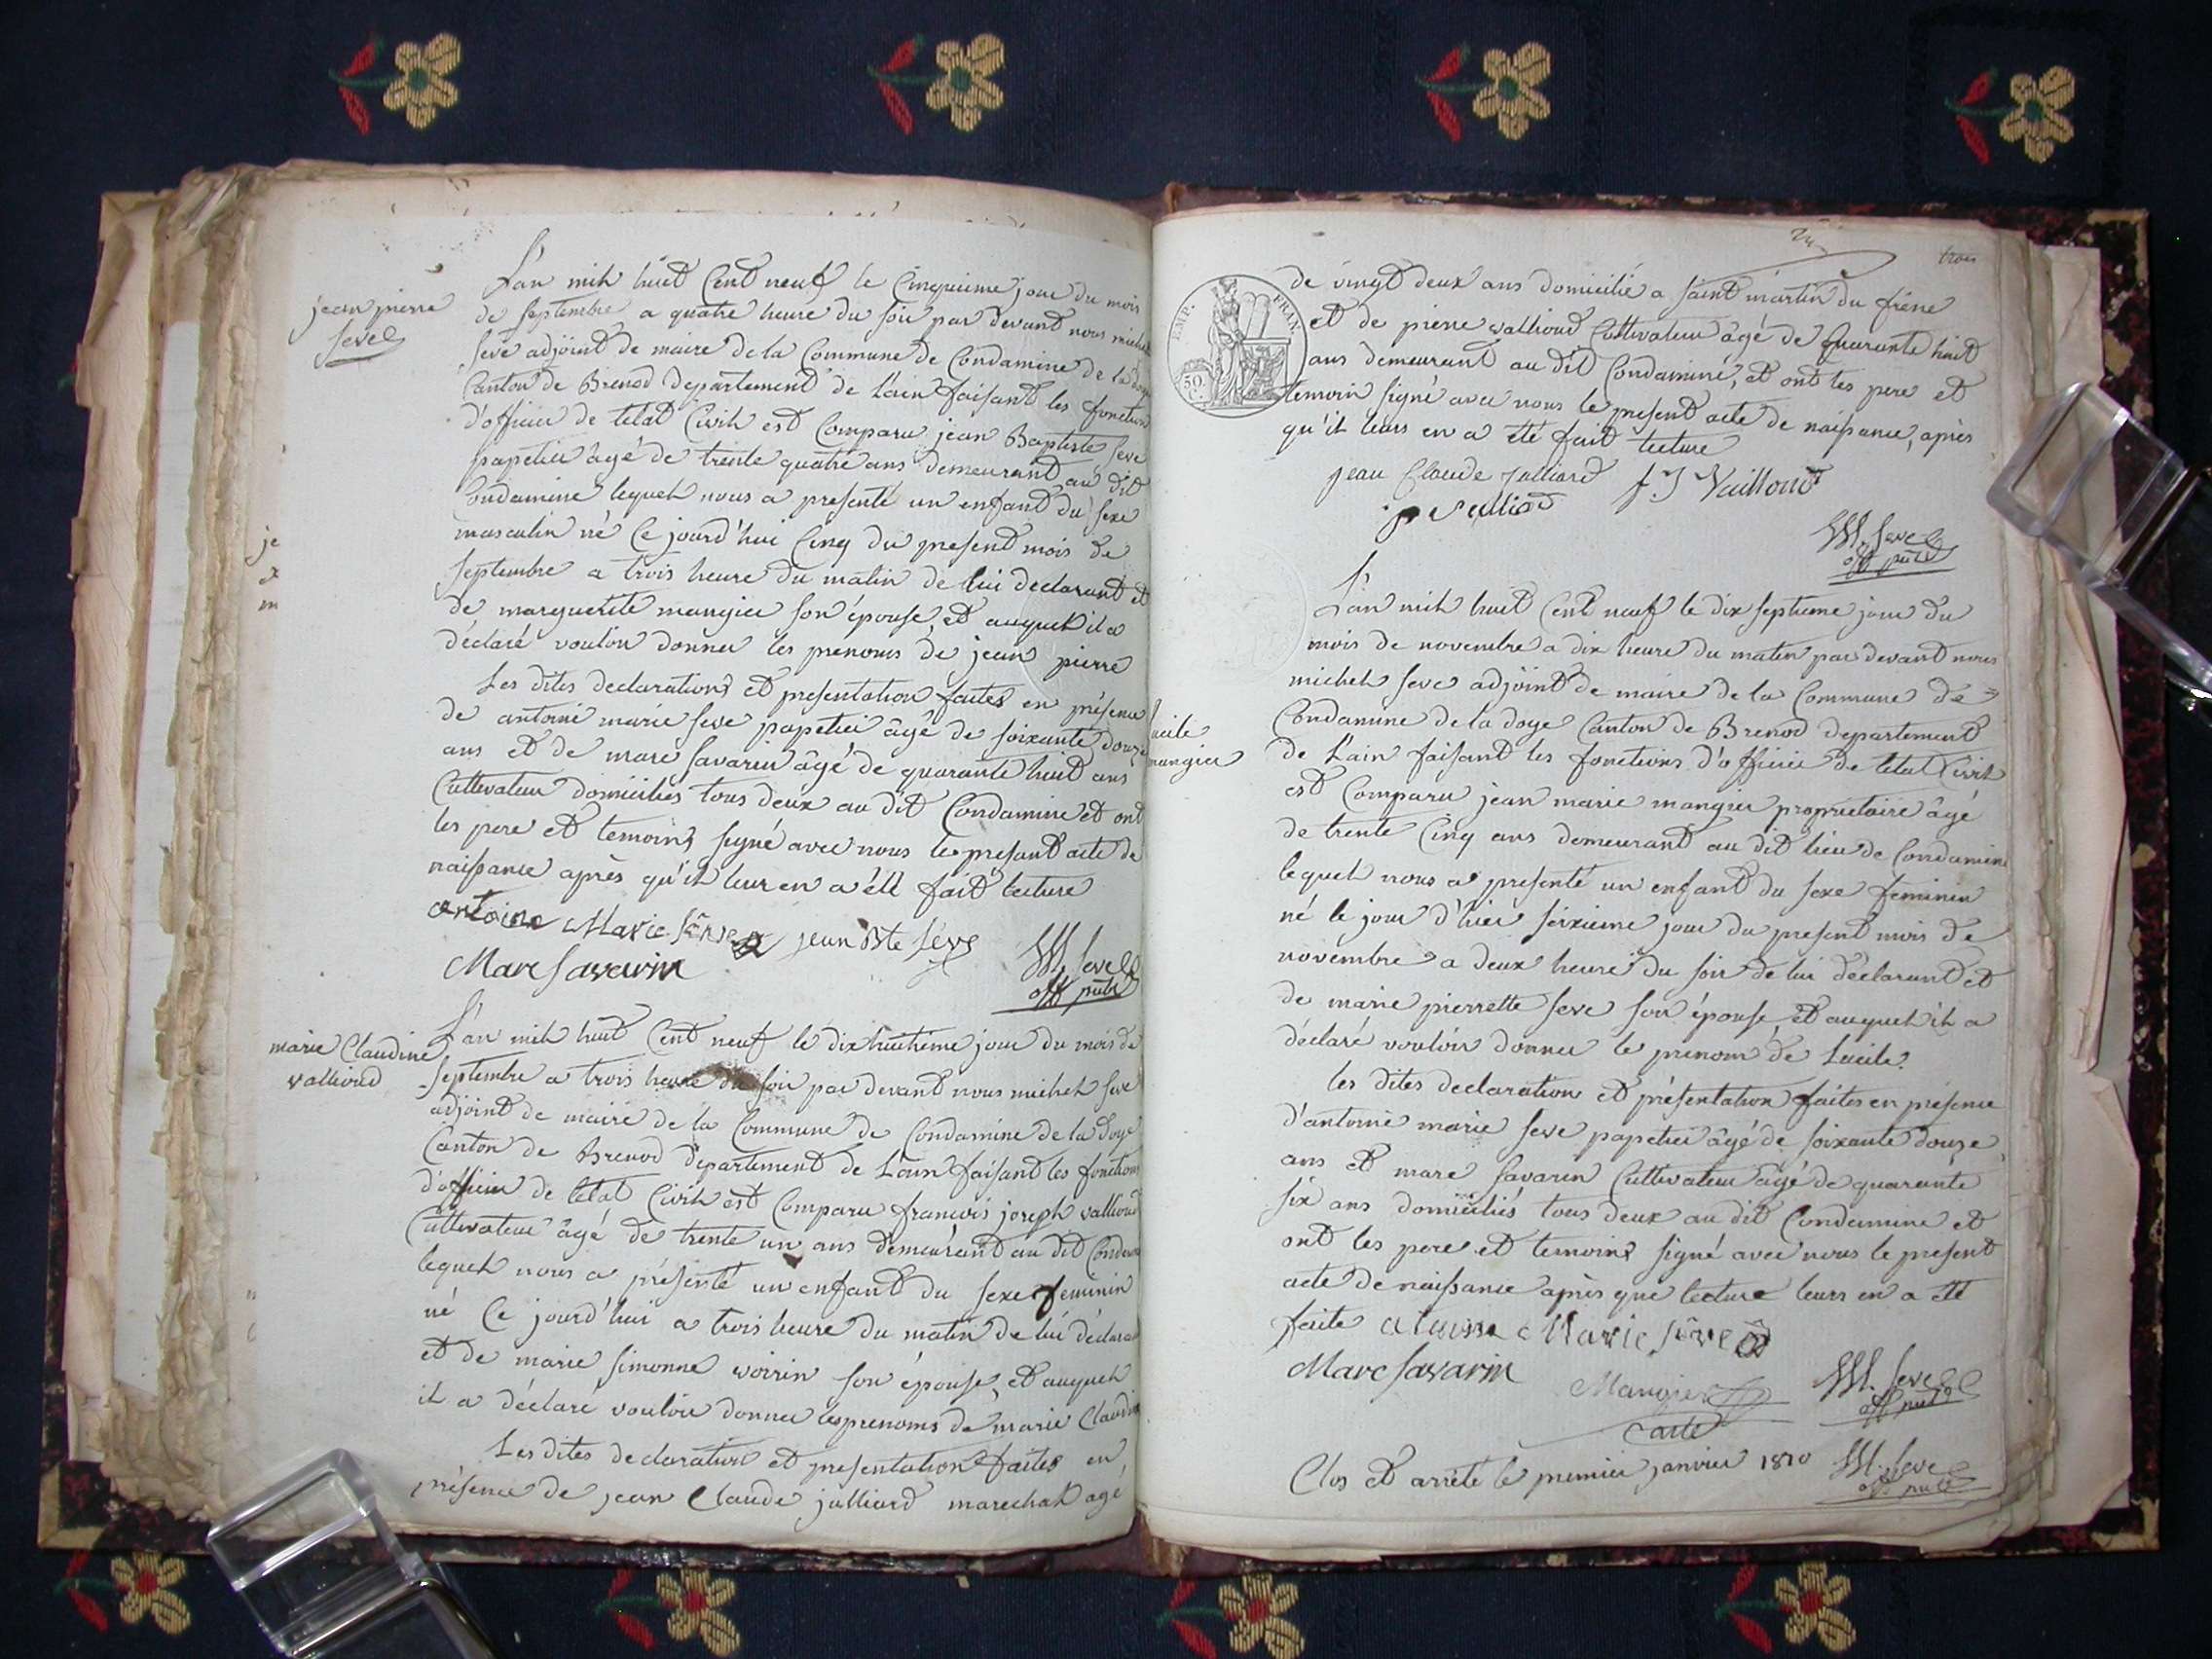 jean pierre
seve
L'an mil huit Cent neuf le Cinquieme jour du mois
de septembre a quatre heure du soir par devant nous michel
seve adjoint de maire de la Commune de Condamine de la doye
Canton de Brenod departement de L'ain faisant les fonctions
d'officier de letat Civil est Comparu jean Baptiste seve
papetier âgé de trente quatre ans demeurant au dit
Condamine lequel nous a presenté un enfant du sexe
masculin né Ce jourd'hui Cinq du present mois de
septembre a trois heure du matin de lui declarant et
de marguerite mangier son épouse, et auquel il a
déclaré vouloir donner les prenoms de jean pierre
Les dites declarations et presentation faites en présence
de antoine marie seve papetier âgé de soixante douze
ans et de marc savarin âgé de quarante huit ans
Cultivateur domiciliés tous deux au dit Condamine et ont
les pere et temoins signé avec nous le present acte de
naissance après qu'il leur en a été fait lecture
antoine Marie seve jean Bte seve
Marc Savarin M. Seve
off pub
marie Claudine
vallioud
L'an mil huit Cent neuf le dix huitieme jour du mois de
septembre a trois heure du soir par devant nous michel seve
adjoint de maire de la Commune de Condamine de la doye
Canton de Brenod departement de L'ain faisant les fonctions
d'officier de létat Civil est Comparu francois joseph vallioud
Cultivateur âgé de trente un ans demeurant au dit Condamine
lequel nous a présenté un enfant du sexe feminin
né Ce jourd'hui a trois heure du matin de lui déclarant
et de marie simonne voirin son épouse, et auquel
il a déclaré vouloir donner les prenoms de marie Claudine
Les dites declaration et presentation faites en
présence de jean Claude julliard marechal agé
24
trois
EMP. FRAN.
50 C.
de vingt deux ans domicilié a saint martin du frêne
et de pierre vallioud Cultivateur âgé de quarante huit
ans demeurant au dit Condamine, et ont les pere et
temoin signé avec nous le present acte de naissance, après
qu'il leurs en a été fait lecture
jean Claude Julliard f. J Vailloud
M. Seve
off pub
Lucile
mangier
L'an mil huit Cent neuf le dix septieme jour du
mois de novembre a dix heure du matin par devant nous
michel seve adjoint de maire de la Commune de
Condamine de la doye Canton de Brenod departement
de L'ain faisant les fonctions d'officier de letat Civil
est Comparu jean marie mangier proprietaire âgé
de trente Cinq ans demeurant au dit lieu de Condamine
lequel nous a presenté un enfant du sexe feminin
né le jour d'hier seizieme jour du present mois de
novembre a deux heure du soir de lui déclarant et
de marie pierrette seve son épouse, et auquel il a
déclaré vouloir donner le prenom de Lucile.
les dites declaration et présentation faites en présence
d'antoine marie seve papetier âgé de soixante douze
ans et marc savarin Cultivateur âgé de quarante
six ans domiciliés tous deux au dit Condamine et
ont les pere et temoins signé avec nous le present
acte de naissance après que lecture leurs en a été
faite antoine Marie seve
Marc Savarin Mangier M. Seve
off pub
Clos et arrêté le premier janvier 1810 M. Seve
off pub